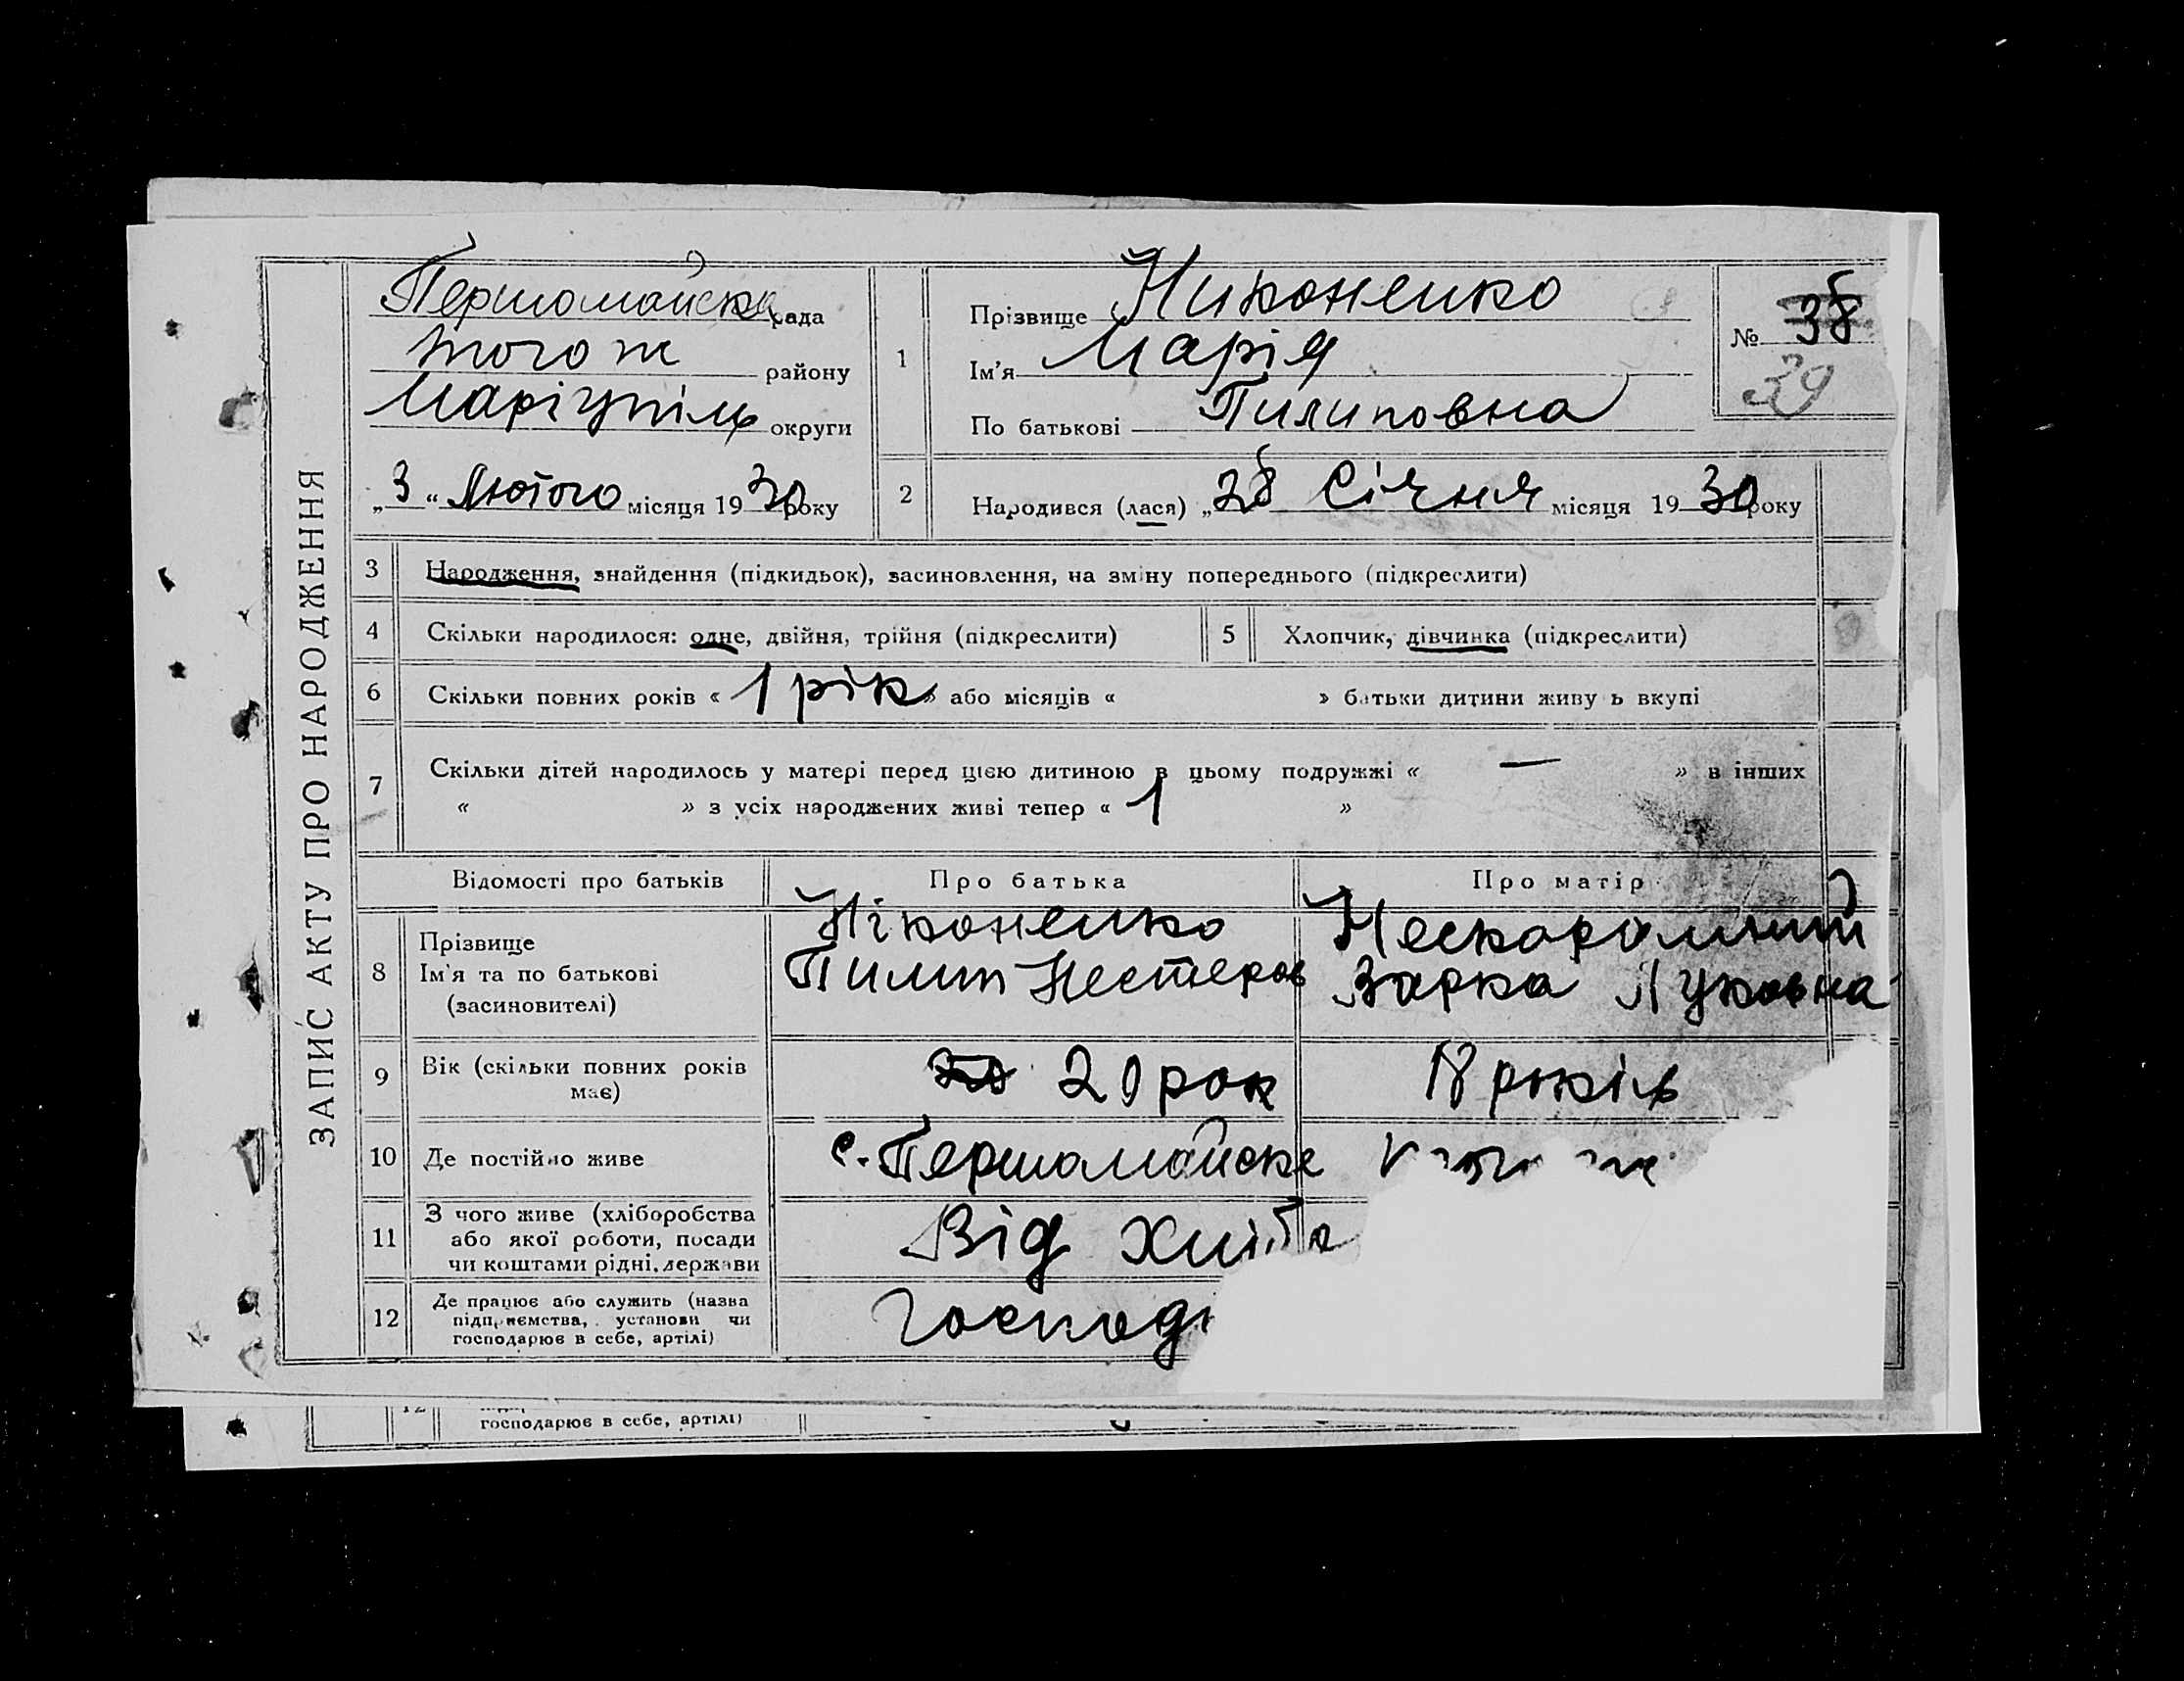 ЗАПИС АКТУ ПРО НАРОДЖЕННЯ
Першомайська рада
того ж району
Маріупіль округи
„3“ Лютого місяця 1930 року
1
Прізвище Никоненко
Ім'я Марія
По батькові Пилиповна
№ 38
39
2
Народився (лася) „28 Січня місяця 1930 року
3 Народження, знайдення (підкидьок), засиновлення, на зміну попереднього (підкреслити)
4 Скільки народилося: одне, двійня, трійня (підкреслити)
5 Хлопчик, дівчинка (підкреслити)
6 Скільки повних років « 1 рік » або місяців « » батьки дитини живу ь вкупі
7 Скільки дітей народилось у матері перед цією дитиною в цьому подружжі « — » в інших
« » з усіх народжених живі тепер « 1 »
Відомості про батьків Про батька Про матір
8
Прізвище
Ім'я та по батькові
(засиновителі)
Ніконенко
Пилип Нестеров
Луковна
9
Вік (скільки повних років
має)
20 рок
18 років
10 Де постійно живе
с. Першомайске
11
З чого живе (хліборобства
або якої роботи, посади
чи коштами рідні, держави
Від
12
Де працює або служить (назва
підприємства, установи чи
господарює в себе, артілі)
Господ
12
господарює в себе, артілі)